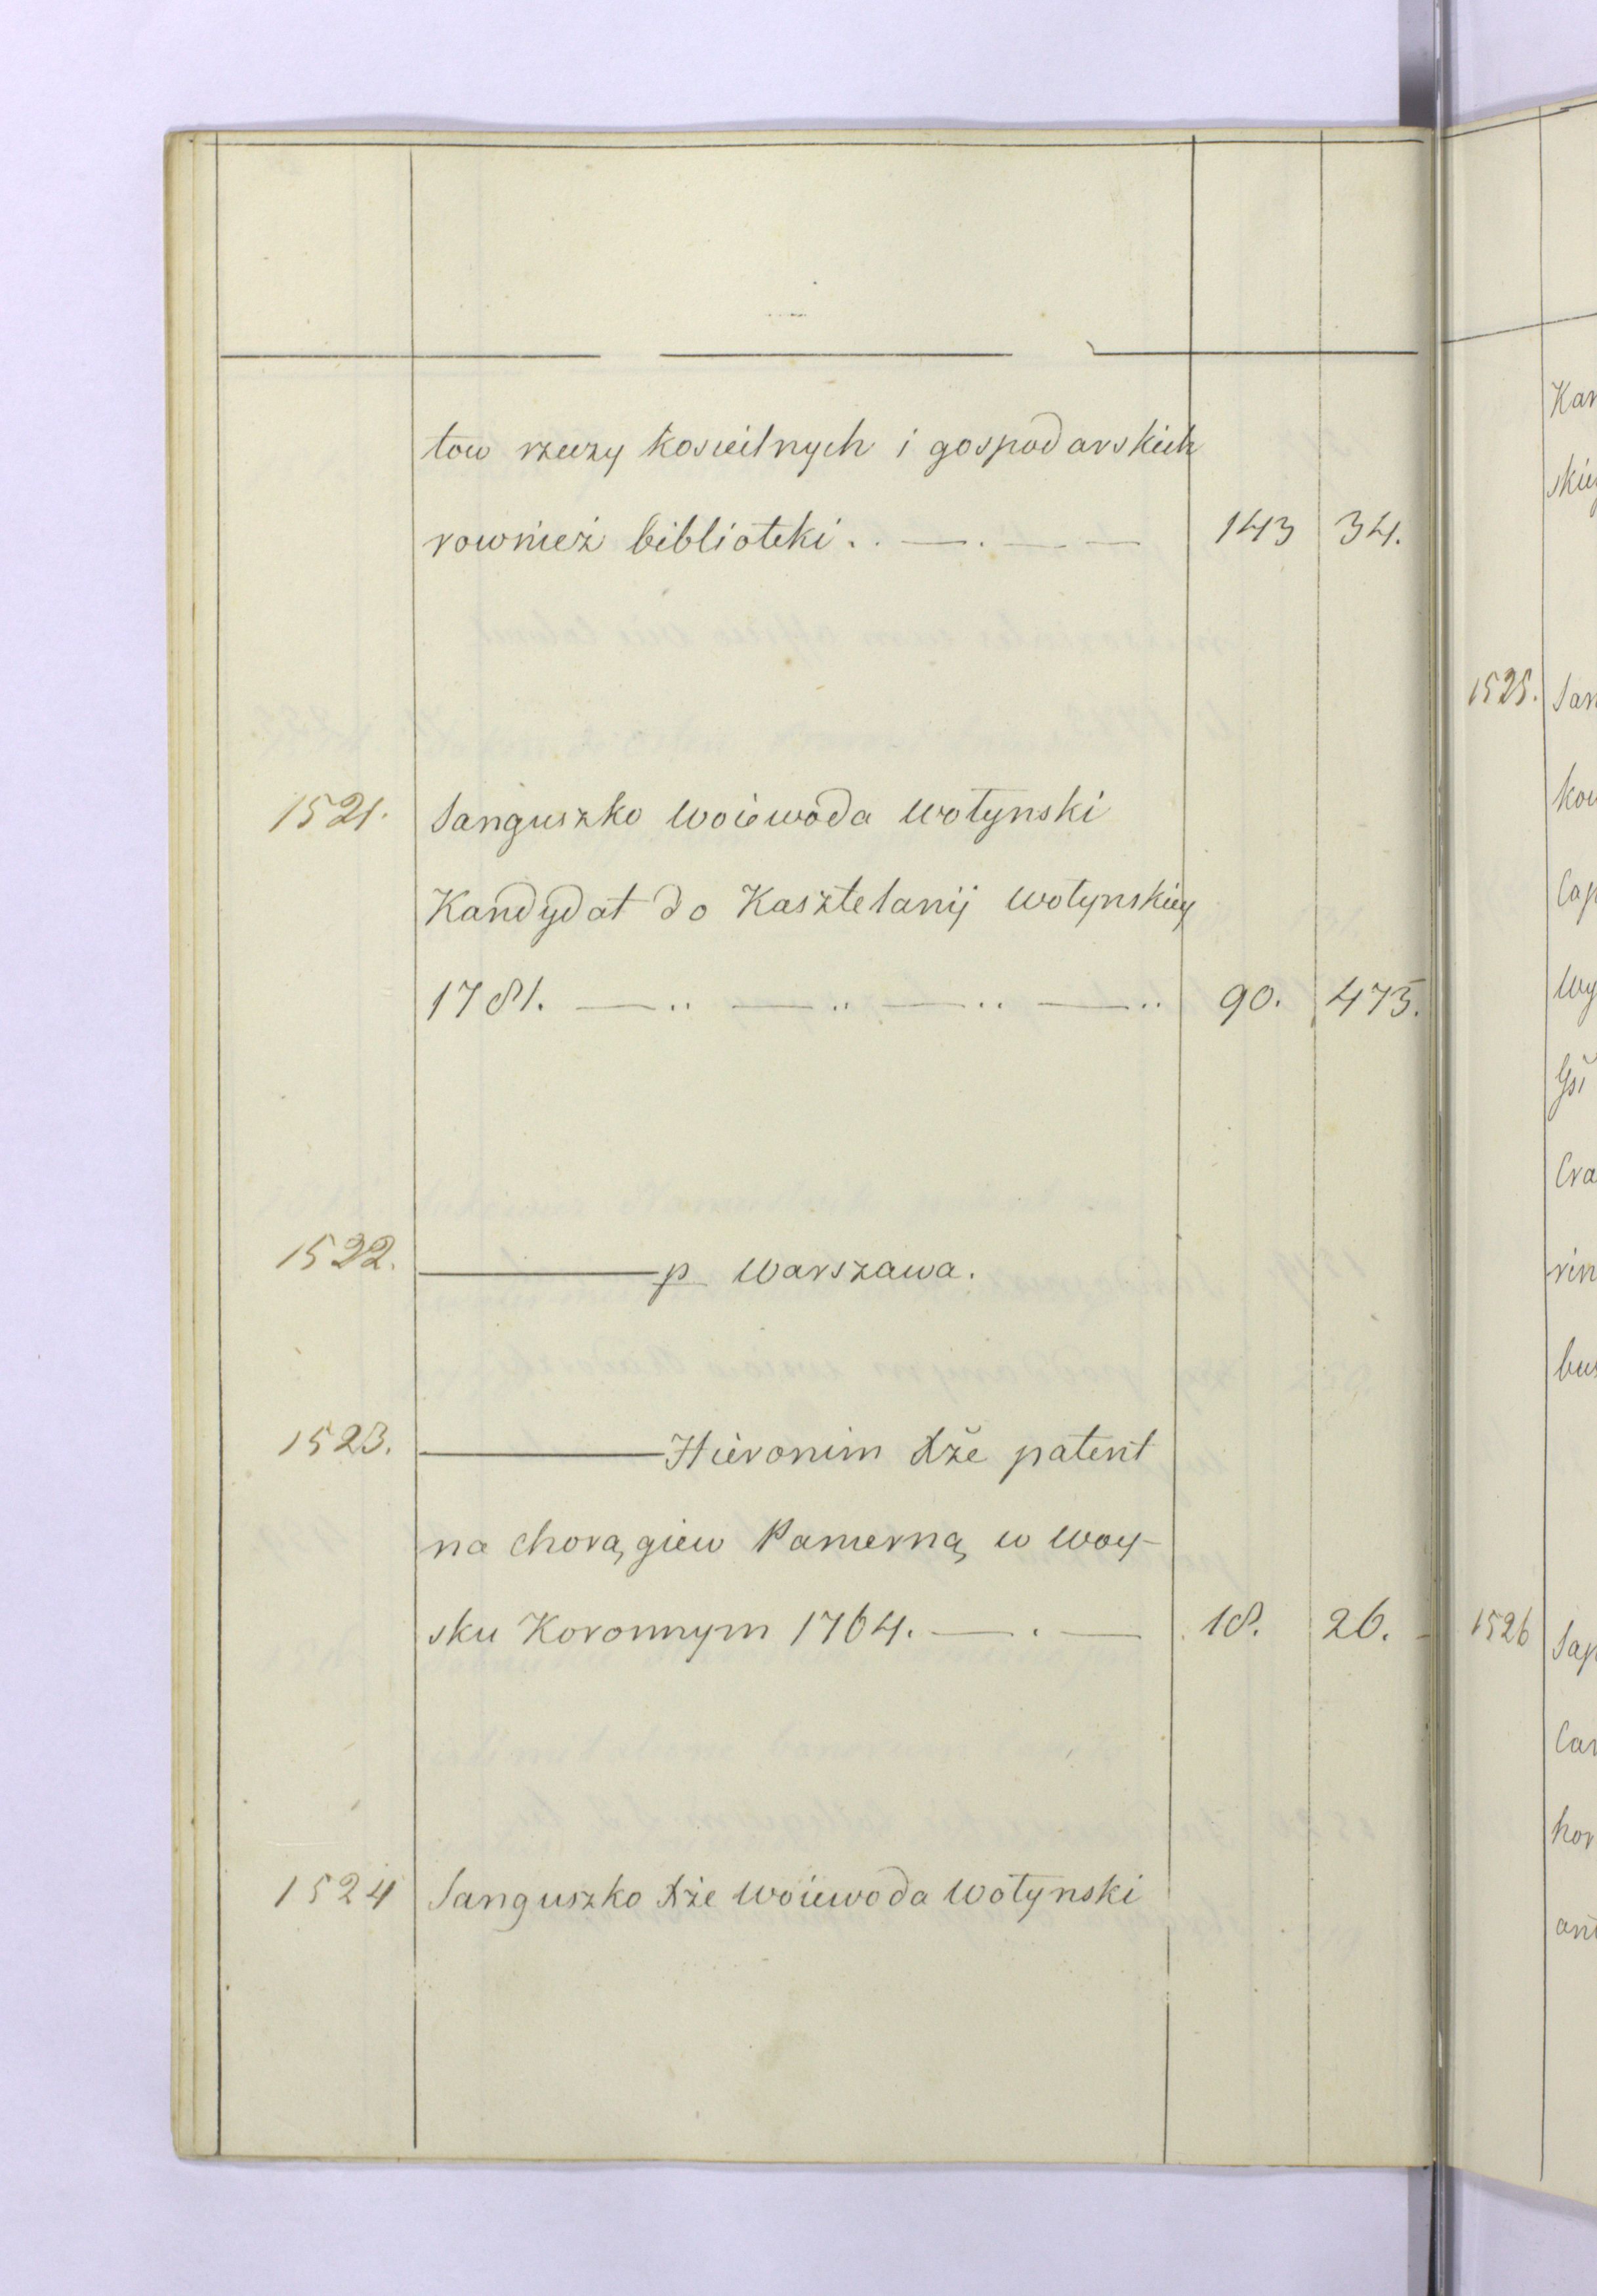 tow rzeczy kościelnych i gospodarskich
rownież biblioteki. . — . — — 143 34.
1521. Sanguszko Woiewoda Wołynski
Kandydat do Kasztelanij Wołynskiey
1781. — .. — .. — .. — .. 90. 475.
1522. ——— p Warszawa.
1523. ——— Hieronim Xże patent
na chorągiew Pancerną w Woy-
sku Koronnym 1764. — . — 18. 26.
1524 Sanguszko Xże Woiewoda Wołynski
1525.
1526